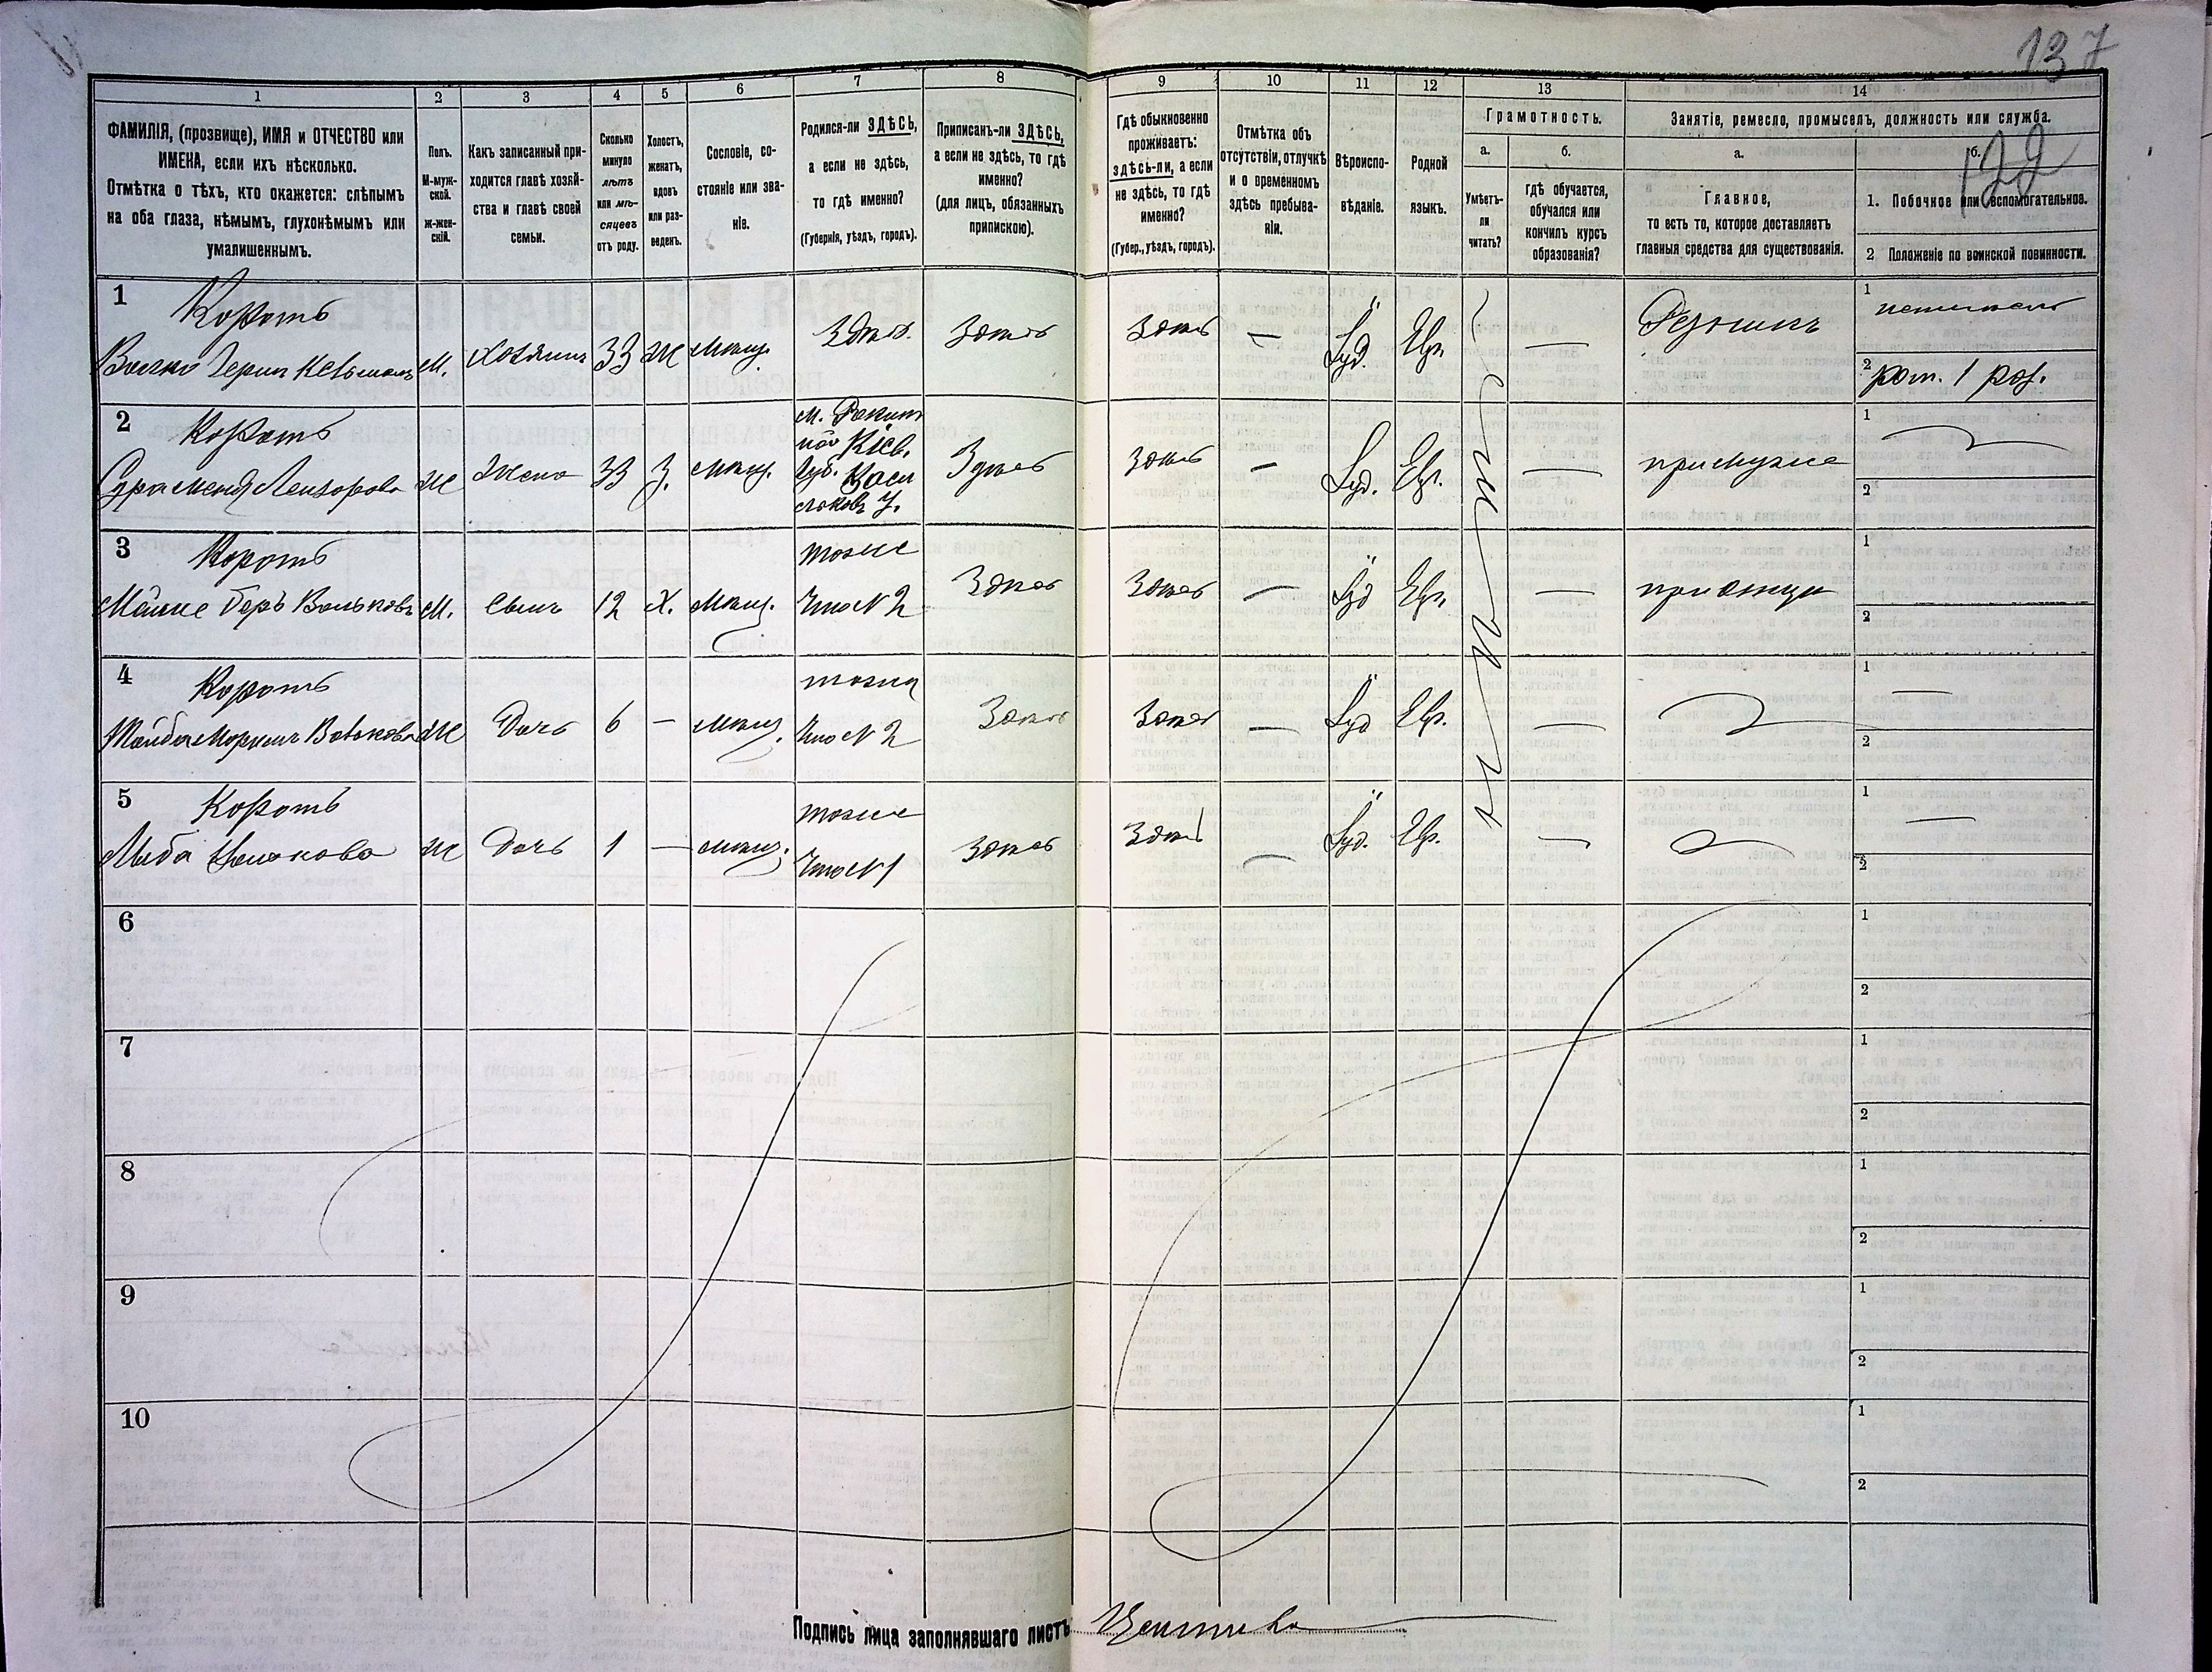 137
122
1
2
3
4
5
6
7
8
9
10
11
12
13
14
ФАМИЛІЯ, (прозвище), ИМЯ и ОТЧЕСТВО или
ИМЕНА, если ихъ нѣсколько.
Отмѣтка о тѣхъ, кто окажется: слѣпымъ
на оба глаза, нѣмымъ, глухонѣмымъ или
умалишеннымъ.
Полъ.
М-муж-
ской.
ж-жен-
скій.
Какъ записанный при-
ходится главѣ хозяй-
ства и главѣ своей
семьи.
Сколько
минуло
лѣтъ
или мѣ-
сяцевъ
отъ роду.
Холостъ,
женатъ,
вдовъ
или раз-
веденъ.
Сословіе, со-
стояніе или зва-
ніе.
Родился-ли ЗДѢСЬ,
а если не здѣсь,
то гдѣ именно?
(Губернія, уѣздъ, городъ).
Приписанъ-ли ЗДѢСЬ,
а если не здѣсь, то гдѣ
именно?
(для лицъ, обязанныхъ
припискою).
Гдѣ обыкновенно
проживаетъ:
здѣсь-ли, а если
не здѣсь, то гдѣ
именно?
(Губер., уѣздъ, городъ).
Отмѣтка объ
отсутствіи, отлучкѣ
и о временномъ
здѣсь пребыва-
ніи.
Вѣроиспо-
вѣданіе.
Родной
языкъ.
Грамотность.
а.
Умѣетъ-
ли
читать?
б.
гдѣ обучается,
обучался или
кончилъ курсъ
образованія?
Занятіе, ремесло, промыселъ, должность или служба.
а.
Главное,
то есть то, которое доставляетъ
главныя средства для существованія.
б.
1. Побочное или вспомогательное.
2 Положеніе по воинской повинности.
1
Коротъ
М. Хозяинъ 33 Ж Мѣщ. Здѣсь. Здѣсь Здѣсь — Іуд. Евр. — Рѣзникъ
1
2 рат. 1 раз.
2
Коротъ
Ж Жена 33 З. Мѣщ.
м. Ракит
ное Кіев.
Губ. Васи
льков. у.
Здѣсь Здѣсь — Іуд. Евр. — при мужѣ
1
2
3
Коротъ
Беръ Вольковъ М. Сынъ 12 Х. Мѣщ.
тоже
что N 2
Здѣсь Здѣсь — Іуд Евр. — при отцѣ
1
2
4
Коротъ
Ж Дочь 6 — Мѣщ.
тоже
что N 2
Здѣсь Здѣсь — Іуд Евр. —
1 —
2
5
Коротъ
Ж Дочь 1 — Мѣщ.
тоже
что N 1
Здѣсь Здѣсь — Іуд. Евр. —
1 —
2
6
1
2
7
1
2
8
1
2
9
1
2
10
1
2
Подпись лица заполнявшаго листъ